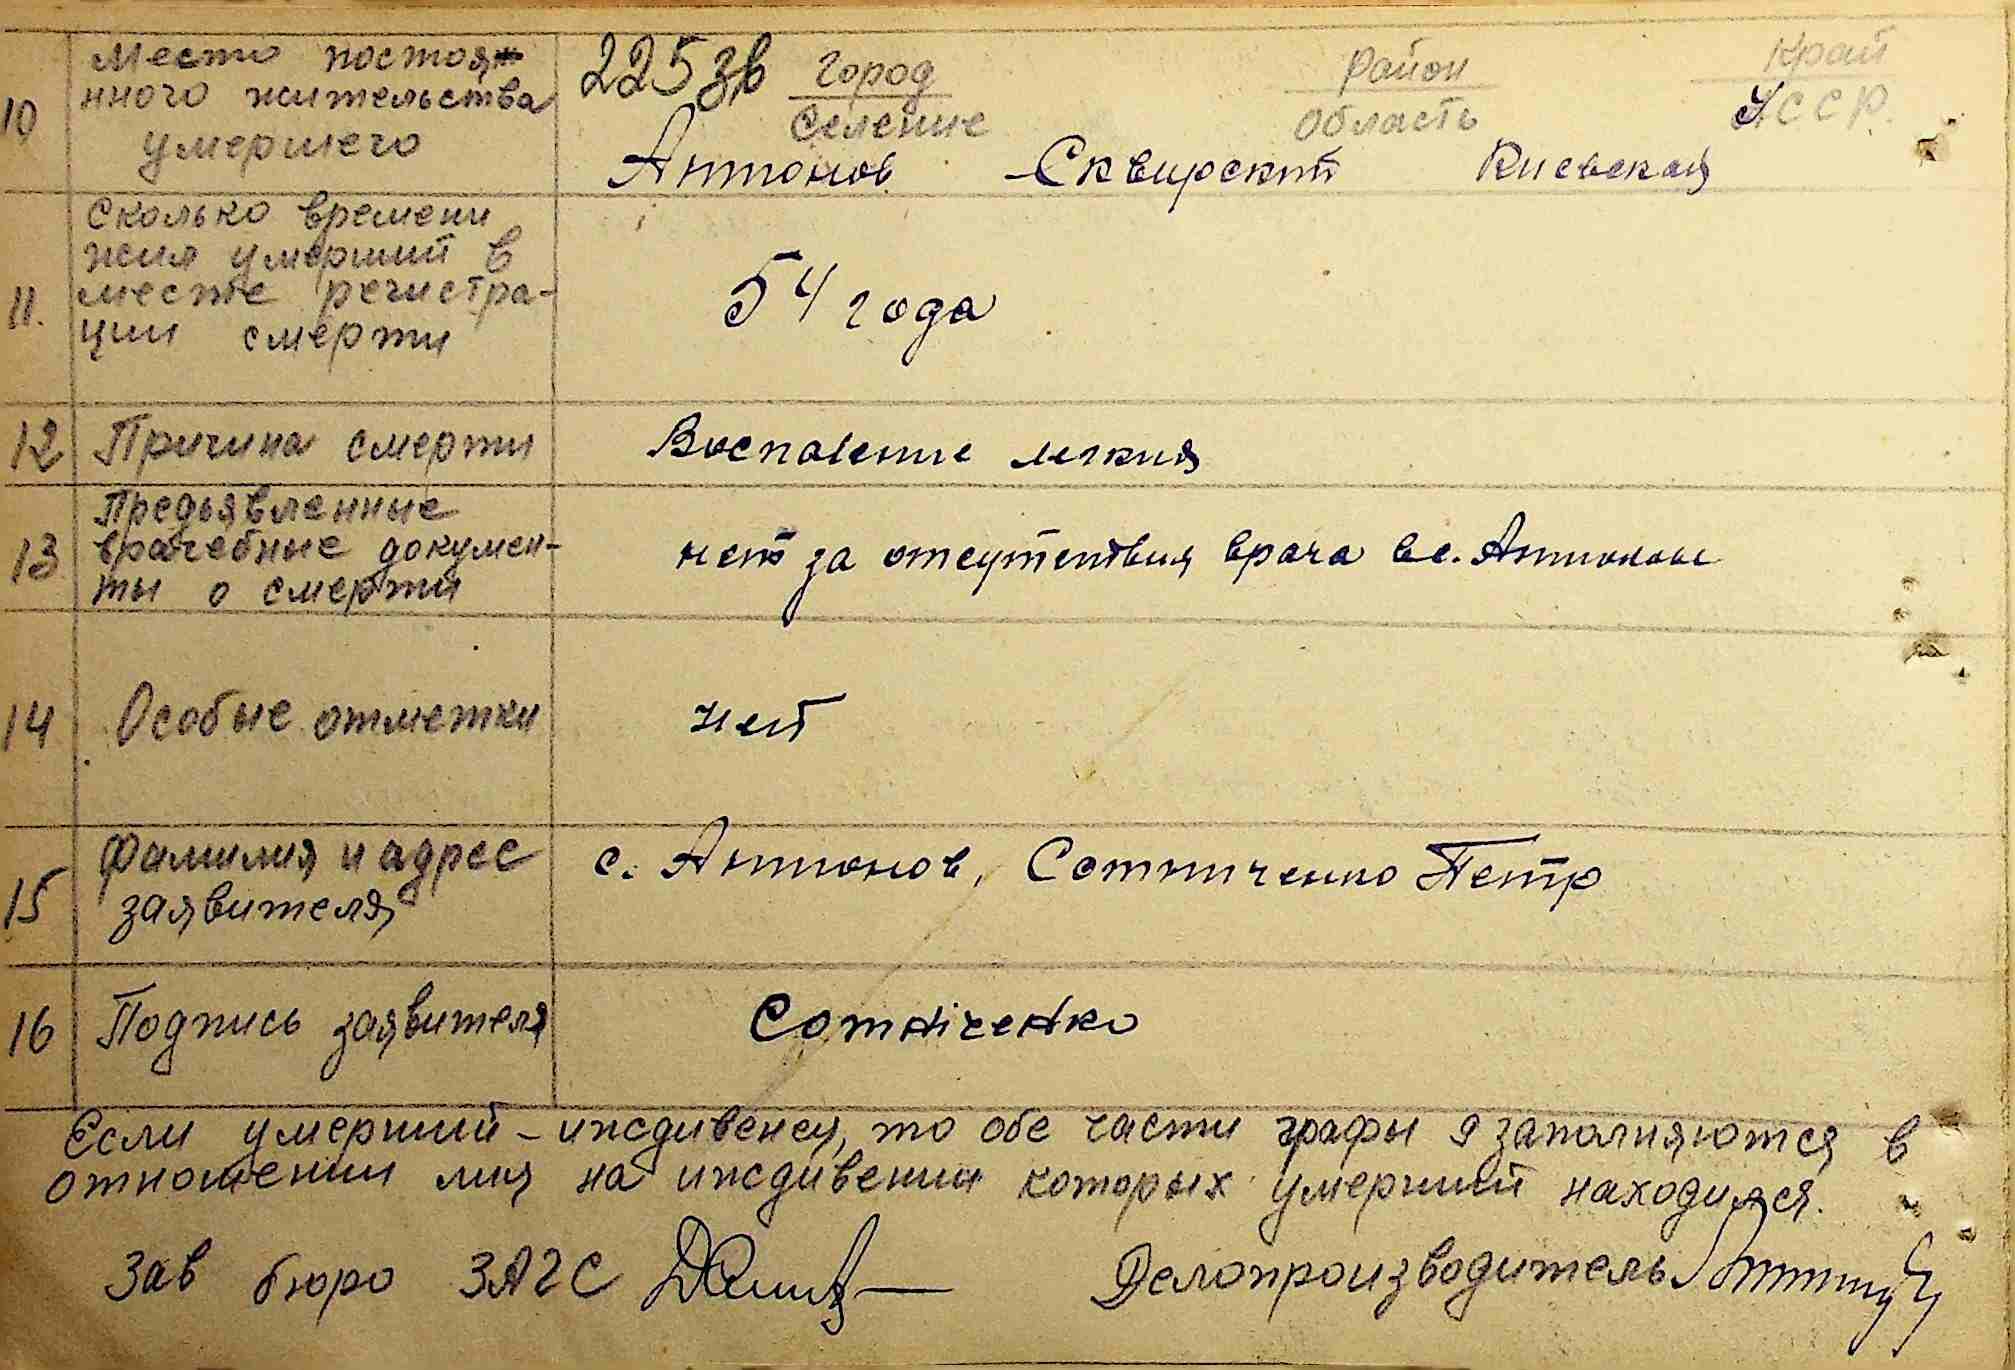 10 Место постоя-
нного жительства
умершего
225 зв город район край
селение область УССР.
Антонов Сквирский Киевская
11. Сколько времени
жил умерший в
месте регистра-
ции смерти
54 года
12 Причина смерти Воспаление легкия
13 Предъявленные
врачебные докумен-
ты о смерти
нет за отсутствия врача в с. Антонове
14 Особые отметки нет
15 Фамилия и адрес
заявителя
с. Антонов, Сотниченко Петр
16 Подпись заявителя Сотніченко
Если умерший - иждивенец, то обе части графы 9 заполняются в
отношении лиц на иждивении которых умерший находился.
Зав бюро ЗАГС Делопроизводитель